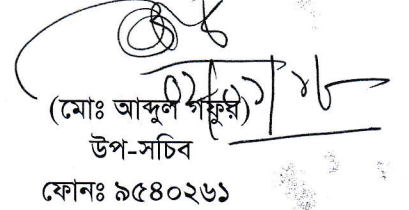 (মোঃ আব্দুল গফুর)
উপ-সচিব
ফোনঃ ৯৫৪০২৬১